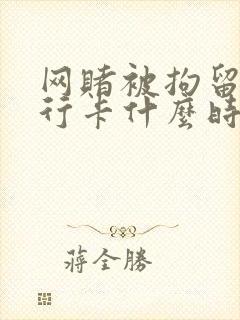 网赌被拘留
行卡什麼時
蔣全勝